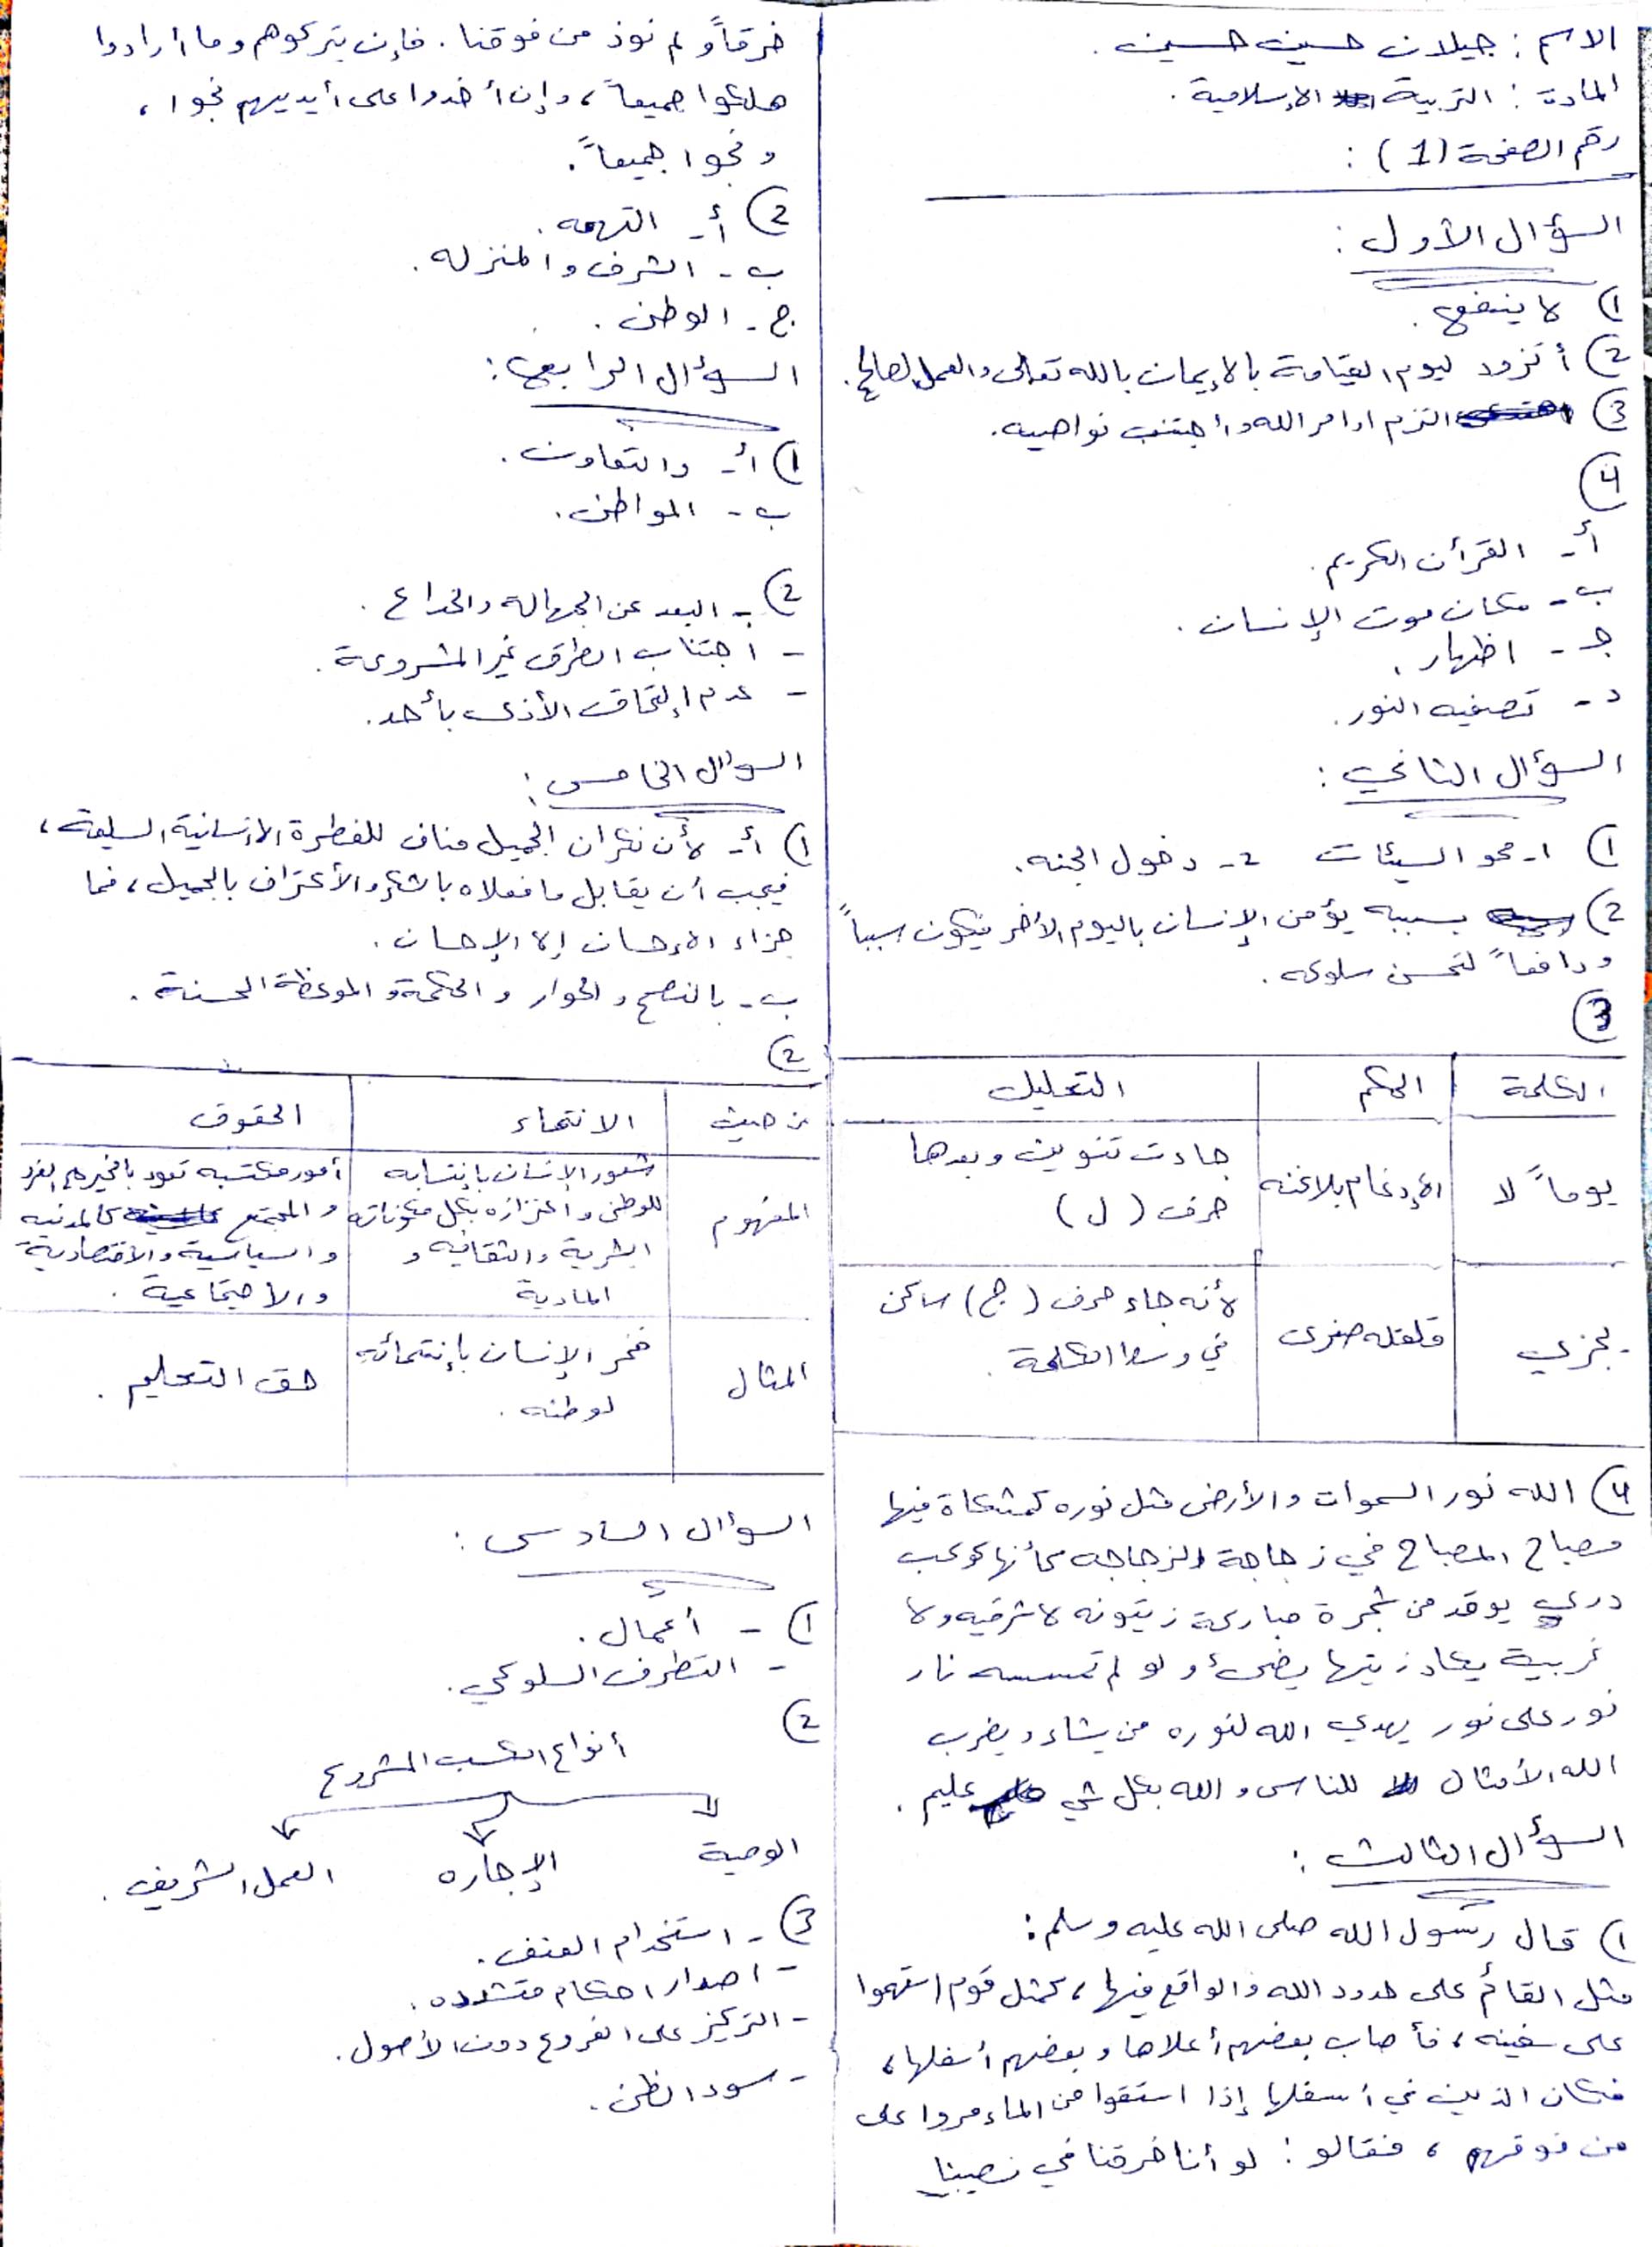 الاسم : جيلان حسين حسين .
المادة : التربية الإسلامية .
رقم الصفحة (1) :
السؤال الأول :
1) لا ينفع .
2) أتزود ليوم القيامة بالإيمان بالله تعالى والعمل الصالح .
3) التزم اوامر الله واجتنب نواهيه .
4)
أ - القرأن الكريم .
ب - مكان موت الإنسان .
جـ - اظهار .
د - تصفيه النور .
السؤال الثاني :
1) 1- محو السيئات 2- دخول الجنه .
2) بسببه يؤمن الإنسان باليوم الأخر فيكون سبباً
ودافعاً لتحسن سلوكه .
3)
الكلمة | الحكم | التعليل
يوماً لا | الإدغام بلاغنه | جاءت تنوين وبعدها
حرف ( ل )
يجزي | قلقله صغرى | لأنه جاء حرف ( ج ) ساكن
في وسط الكلمة .
4) الله نور السموات والأرض مثل نوره كمشكاة فيها
مصباح المصباح في زجاجة الزجاجه كأنها كوكب
دري يوقد من شجرة مباركة زيتونه لا شرقيه ولا
غربية يكاد زيتها يضئ ولو لم تمسسه نار
نور على نور يهدي الله لنوره من يشاء ويضرب
الله الأمثال للناس والله بكل شي عليم .
السؤال الثالث :
1) قال رسول الله صلى الله عليه وسلم :
مثل القائم على حدود الله والواقع فيها ، كمثل قوم استهموا
على سفينه ، فأصاب بعضهم أعلاها وبعضهم أسفلها ،
فكان الذين في أسفلها إذا استقوا من الماء مروا على
من فوقهم ، فقالو : لو أنا خرقنا في نصيبنا
خرقاً ولم نوذ من فوقنا . فإن يتركوهم وما أرادوا
هلكوا جميعاً ، وإن أخدوا على أيديهم نجوا ،
ونجوا جميعاً .
2) أ - التهمه .
ب - الشرف والمنزله .
ج - الوطن .
السؤال الرابع :
1) أ - والتعاون .
ب - المواطن .
2) - البعد عن الجهالة والخداع .
- اجتناب الطرق غير المشروعة .
- عدم إلتحاق الأذى بأحد .
السوال الخامس :
1) أ - لأن نكران الجميل مناف للفطرة الانسانية السليمة ،
فيجب أن يقابل ما فعلاه بالشكر والأعتراف بالجميل ، فما
جزاء الإحسان إلا الإحسان .
ب - بالنصح والحوار والحكمة والموعظة الحسنة .
2)
من حيث | الانتماء | الحقوق
المفهوم | شعور الإنسان بإنتسابه | أمور مكتسبه تعود بالخير على الفرد
للوطن واعتزازه بكل مكوناته | والمجتمع كالمدنيه
البشرية والثقافيه و | والسياسية والاقتصادية
المادية | والاجتماعية .
المثال | فخر الإنسان بإنتمائه | حق التعليم .
لوطنه .
السؤال السادس :
1) - أعمال .
- التطرف السلوكي .
2)
أنواع الكسب المشروع
الوصية الإجاره العمل الشريف .
3) - استخدام العنف .
- اصدار احكام متشدده .
- التركيز على الفروع دون الأصول .
- سوء الظن .